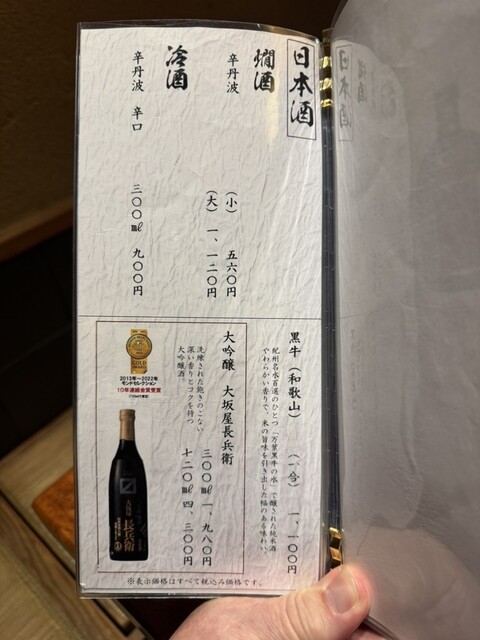 日本酒
燗酒
辛丹波
(小) 五六〇円
(大) 一、一二〇円
冷酒
辛丹波 辛口
三〇〇㎖ 九〇〇円
黒牛(和歌山) (一合) 一、一〇〇円
紀州名水百選のひとつ「万葉黒牛の水」で醸された純米酒
でやわらかい香りで、米の旨味を引き出した幅のある味わい。
大吟醸 大坂屋長兵衛
三〇〇㎖ 一、九八〇円
七二〇㎖ 四、三〇〇円
洗練された飽きのこない
深い香りとコクを持つ
大吟醸酒。
2013年~2022年
モンドセレクション
10年連続金賞受賞
大坂屋
長兵衛
※表示価格はすべて税込み価格です。